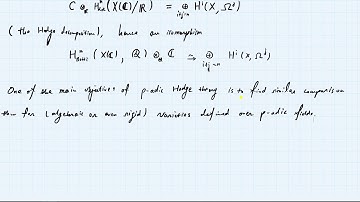 C ⊗_ℝ H^n_dR (X(ℂ)/ℝ) = ⊕_{i+j=n} H^i(X, Ω^j)
(the Hodge decomposition), hence an isomorphism
H^n_Betti (X(ℂ), ℚ) ⊗_ℚ ℂ ≃ ⊕_{i+j=n} H^i(X, Ω^j)
One of the main objectives of p-adic Hodge theory is to find similar comparison
thm for (algebraic or even rigid) varieties defined over p-adic fields.